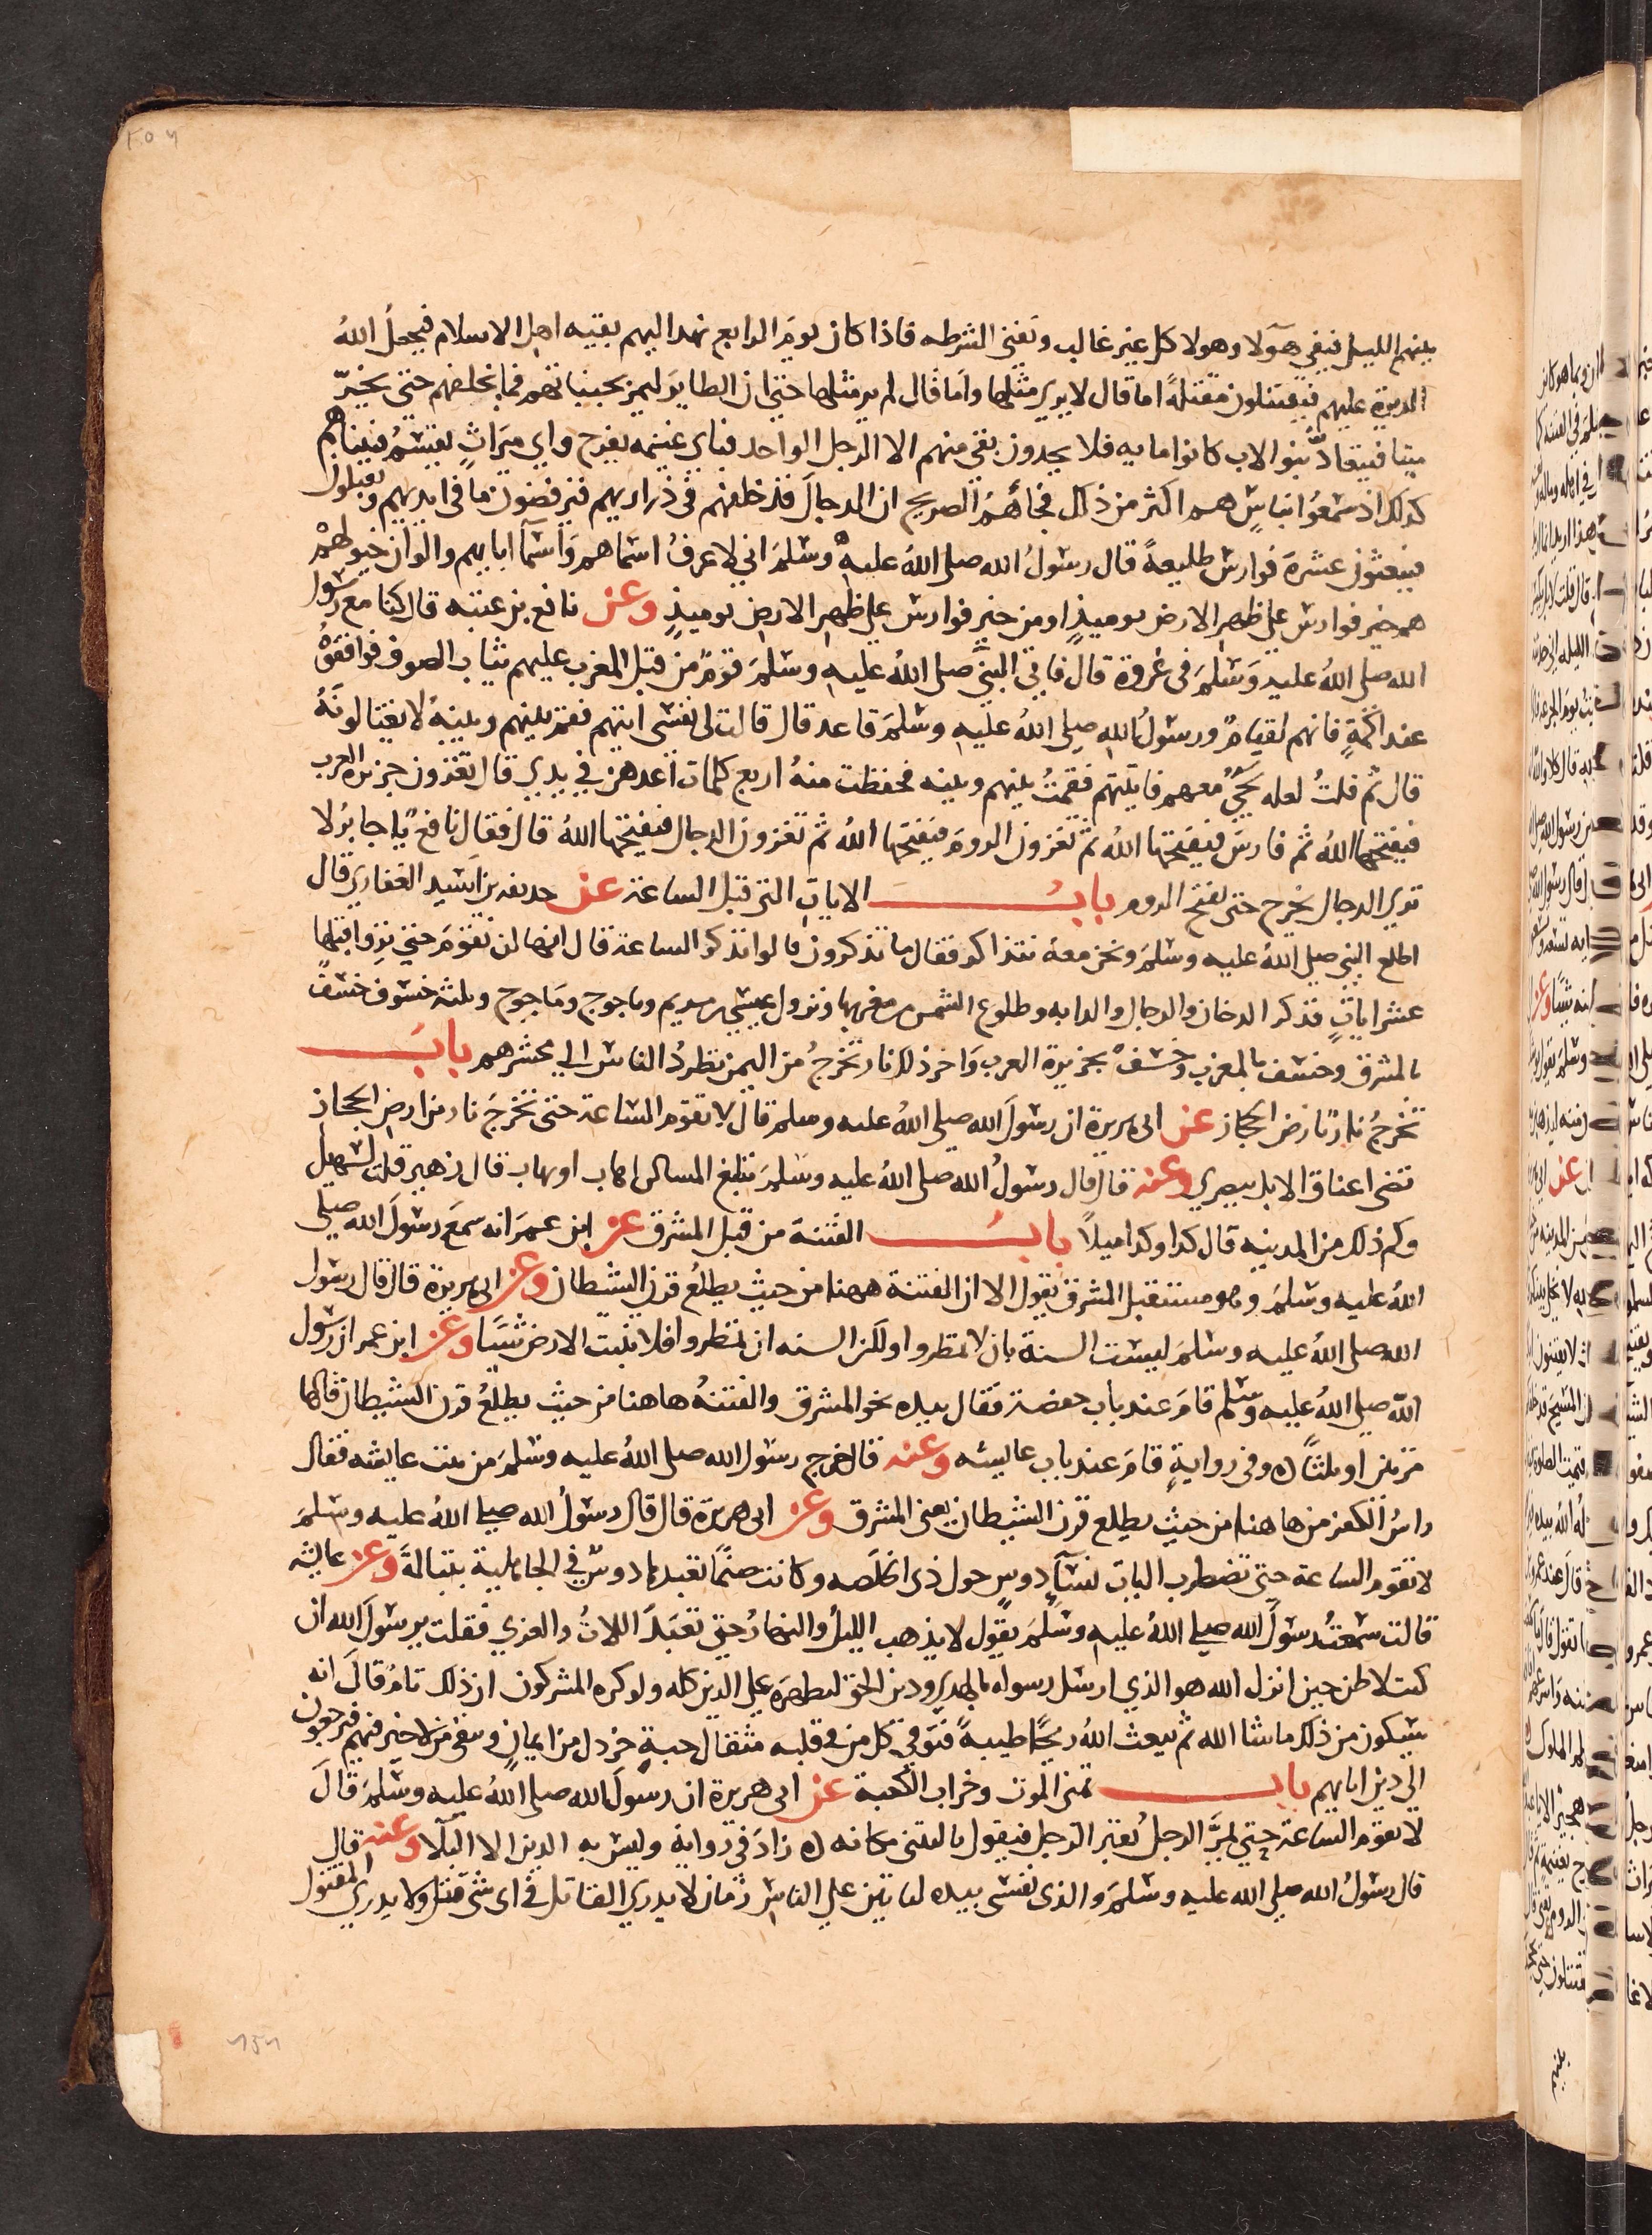 بينهم الليل فيفي هولا وهولا كل غير غالب وتفني الشرطه فاذا كان يوم الرابع نهد اليهم بقيه اهل الاسلام فيجعل الله
الدبرة عليهم فيقتتلون مقتلة اما قال لا يري مثلها واما قال لم ير مثلها حتي ان الطاير ليمر بجنباتهم فما يخلفهم حتي يخرّ
ميتا فيتعادّ بنو الاب كانوا مايه فلا يجدون بقي منهم الا الرجل الواحد فباي غنيمه يفرح واي ميراث يقتسم فبيناهم
كذلك اذ سمعوا بناس هم اكثر من ذلك فجاهم الصريح ان الدجال قد خلفهم في ذراريهم فيرفضون ما في ايديهم ويقبلون
فيبعثون عشرة فوارس طليعة قال رسول الله صلي الله عليه وسلم اني لاعرف اسماهم واسما ابايهم والوان خيولهم
هم خير فوارس علي ظهر الارض يوميذ او من خير فوارس علي ظهر الارض يوميذ وعن نافع بن عتبه قال كنا مع رسول
الله صلي الله عليه وسلم في غزوة قال فاتي النبي صلي الله عليه وسلم قوم من قبل المغرب عليهم ثياب الصوف فوافقوه
عند اكمة فانهم لقيام ورسول الله صلي الله عليه وسلم قاعد قال قالت لي نفسي ايتهم فقم بينهم وبينه لا يغتالونه
قال ثم قلت لعله نجي معهم فاتيتهم فقمت بينهم وبينه فحفظت منه اربع كلمات اعدهن في يدي قال تغزون جزيرة العرب
فيفتحها الله ثم فارس فيفتحها الله ثم تغزون الروم فيفتحها الله ثم تغزون الدجال فيفتحها الله قال فقال نافع يا جابر لا
نري الدجال يخرج حتي يفتح الروم باب الايات التي قبل الساعة عن حذيفه بن اسيد الغفاري قال
اطلع النبي صلي الله عليه وسلم ونحن معه نتذاكر فقال ما تذكرون قالوا نذكر الساعة قال انها لن تقوم حتي تروا قبلها
عشر ايات فذكر الدخان والدجال والدابه وطلوع الشمس من مغربها ونزول عيسي بن مريم وياجوج وماجوج وثلثه خسوف خسف
بالمشرق وخسف بالمغرب وخسف بجزيرة العرب واخر ذلك نار تخرج من اليمن تطرد الناس الي محشرهم باب
تخرج نار بارض الحجاز عن ابي هريرة ان رسول الله صلي الله عليه وسلم قال لا تقوم الساعة حتي تخرج نار من ارض الحجاز
تضي اعناق الابل ببصري وعنه قال قال رسول الله صلي الله عليه وسلم تبلغ المساكن اهاب او يهاب قال زهير قلت لسهيل
وكم ذلك من المدينه قال كذا وكذا ميلا باب الفتنة من قبل المشرق عن ابن عمر انه سمع رسول الله صلي
الله عليه وسلم وهو مستقبل المشرق يقول الا ان الفتنة ههنا من حيث يطلع قرن الشيطان وعن ابي هريرة قال قال رسول
الله صلي الله عليه وسلم ليست السنة بان لا تمطروا ولكن السنه ان تمطروا فلا تنبت الارض شيا وعن ابن عمر ان رسول
الله صلي الله عليه وسلم قام عند باب حفصة فقال بيده نحو المشرق والفتنة هاهنا من حيث يطلع قرن الشيطان قالها
مرتين او ثلثا وفي رواية قام عند باب عايشه وعنه قال خرج رسول الله صلي الله عليه وسلم من بيت عايشه فقال
راس الكفر من هاهنا من حيث يطلع قرن الشيطان يعني المشرق وعن ابي هريرة قال قال رسول الله صلي الله عليه وسلم
لا تقوم الساعة حتي تضطرب اليات نسآ دوس حول ذي الخلصه وكانت صنما تعبدها دوس في الجاهلية بتبالة وعن عايشه
قالت سمعت رسول الله صلي الله عليه وسلم يقول لا يذهب الليل والنهار حتي تعبد اللات والعزي فقلت يرسول الله ان
كنت لاظن حين انزل الله هو الذي ارسل رسوله بالهدي ودين الحق ليظهره علي الدين كله ولو كره المشركون ان ذلك تام قال انه
سيكون من ذلك ما شا الله ثم يبعث الله ريحا طيبة فتوفي كل من في قلبه مثقال حبة خردل من ايمان ويبقي من لا خير فيهم فيرجعون
الي دين ابايهم باب تمني الموت وخراب الكعبة عن ابي هريرة ان رسول الله صلي الله عليه وسلم قال
لا تقوم الساعة حتي يمر الرجل بقبر الرجل فيقول ياليتني مكانه زاد في رواية وليس به الدين الا البلا وعنه قال
قال رسول الله صلي الله عليه وسلم والذي نفسي بيده لياتين علي الناس زمان لا يدري القاتل في اي شي قتل ولا يدري المقتول